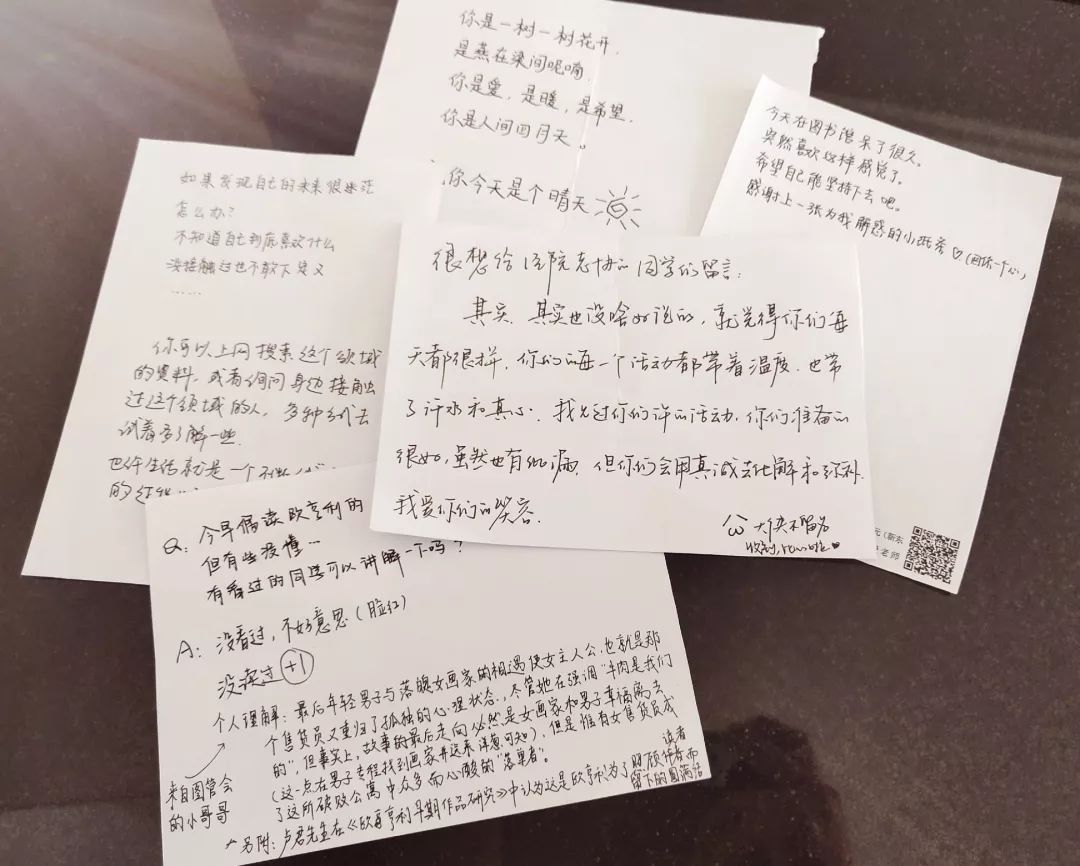 你是一树一树花开,
是燕在梁间呢喃,
你是爱,是暖,是希望,
你是人间四月天。
你今天是个晴天
今天在图书馆呆了很久。
突然喜欢这样感觉了。
希望自己能坚持下去吧。
感谢上一张为我解惑的小纸条♡(回你一个心)
元(新东
老师
如果发现自己的未来很迷茫
怎么办?
不知道自己到底喜欢什么
没接触过也不敢下定义
……
你可以上网搜索这个领域
的资料,或者询问身边接触
过这个领域的人,多种方式去
试着多了解一些.
也许生活就是一个不断
的过程
很想给法院志协的同学们留言:
其实,其实也没啥好说的,就觉得你们每
天都很拼,你们的每一个活动都带着温度,也带
了汗水和真心.我见过你们许的活动,你们准备的
很好,虽然也有纰漏,但你们会用真诚去化解和弥补.
我爱你们的笑容.
大侠不留名
收到,
Q:今早偶读欧亨利的
但有些没懂…
有看过的同学可以讲解一下吗?
A:没看过,不好意思(脸红)
没读过 +1
个人理解:最后年轻男子与落魄女画家的相遇使女主人公,也就是那
个售货员又重归了孤独的心理状态.,尽管她在强调“牛肉是我们
的”,但事实上,故事的最后走向必然是女画家和男子幸福离去
(这一点在男子专程找到画家并送来洋葱可知),但是谁有女售货员成
了这所破败公寓中众多而心酸的“落单者”。
来自图管会
的小哥哥
另附:卢君先生在《欧·亨利早期作品研究》中认为这是欧亨利为了照顾读者而
留下的圆满结